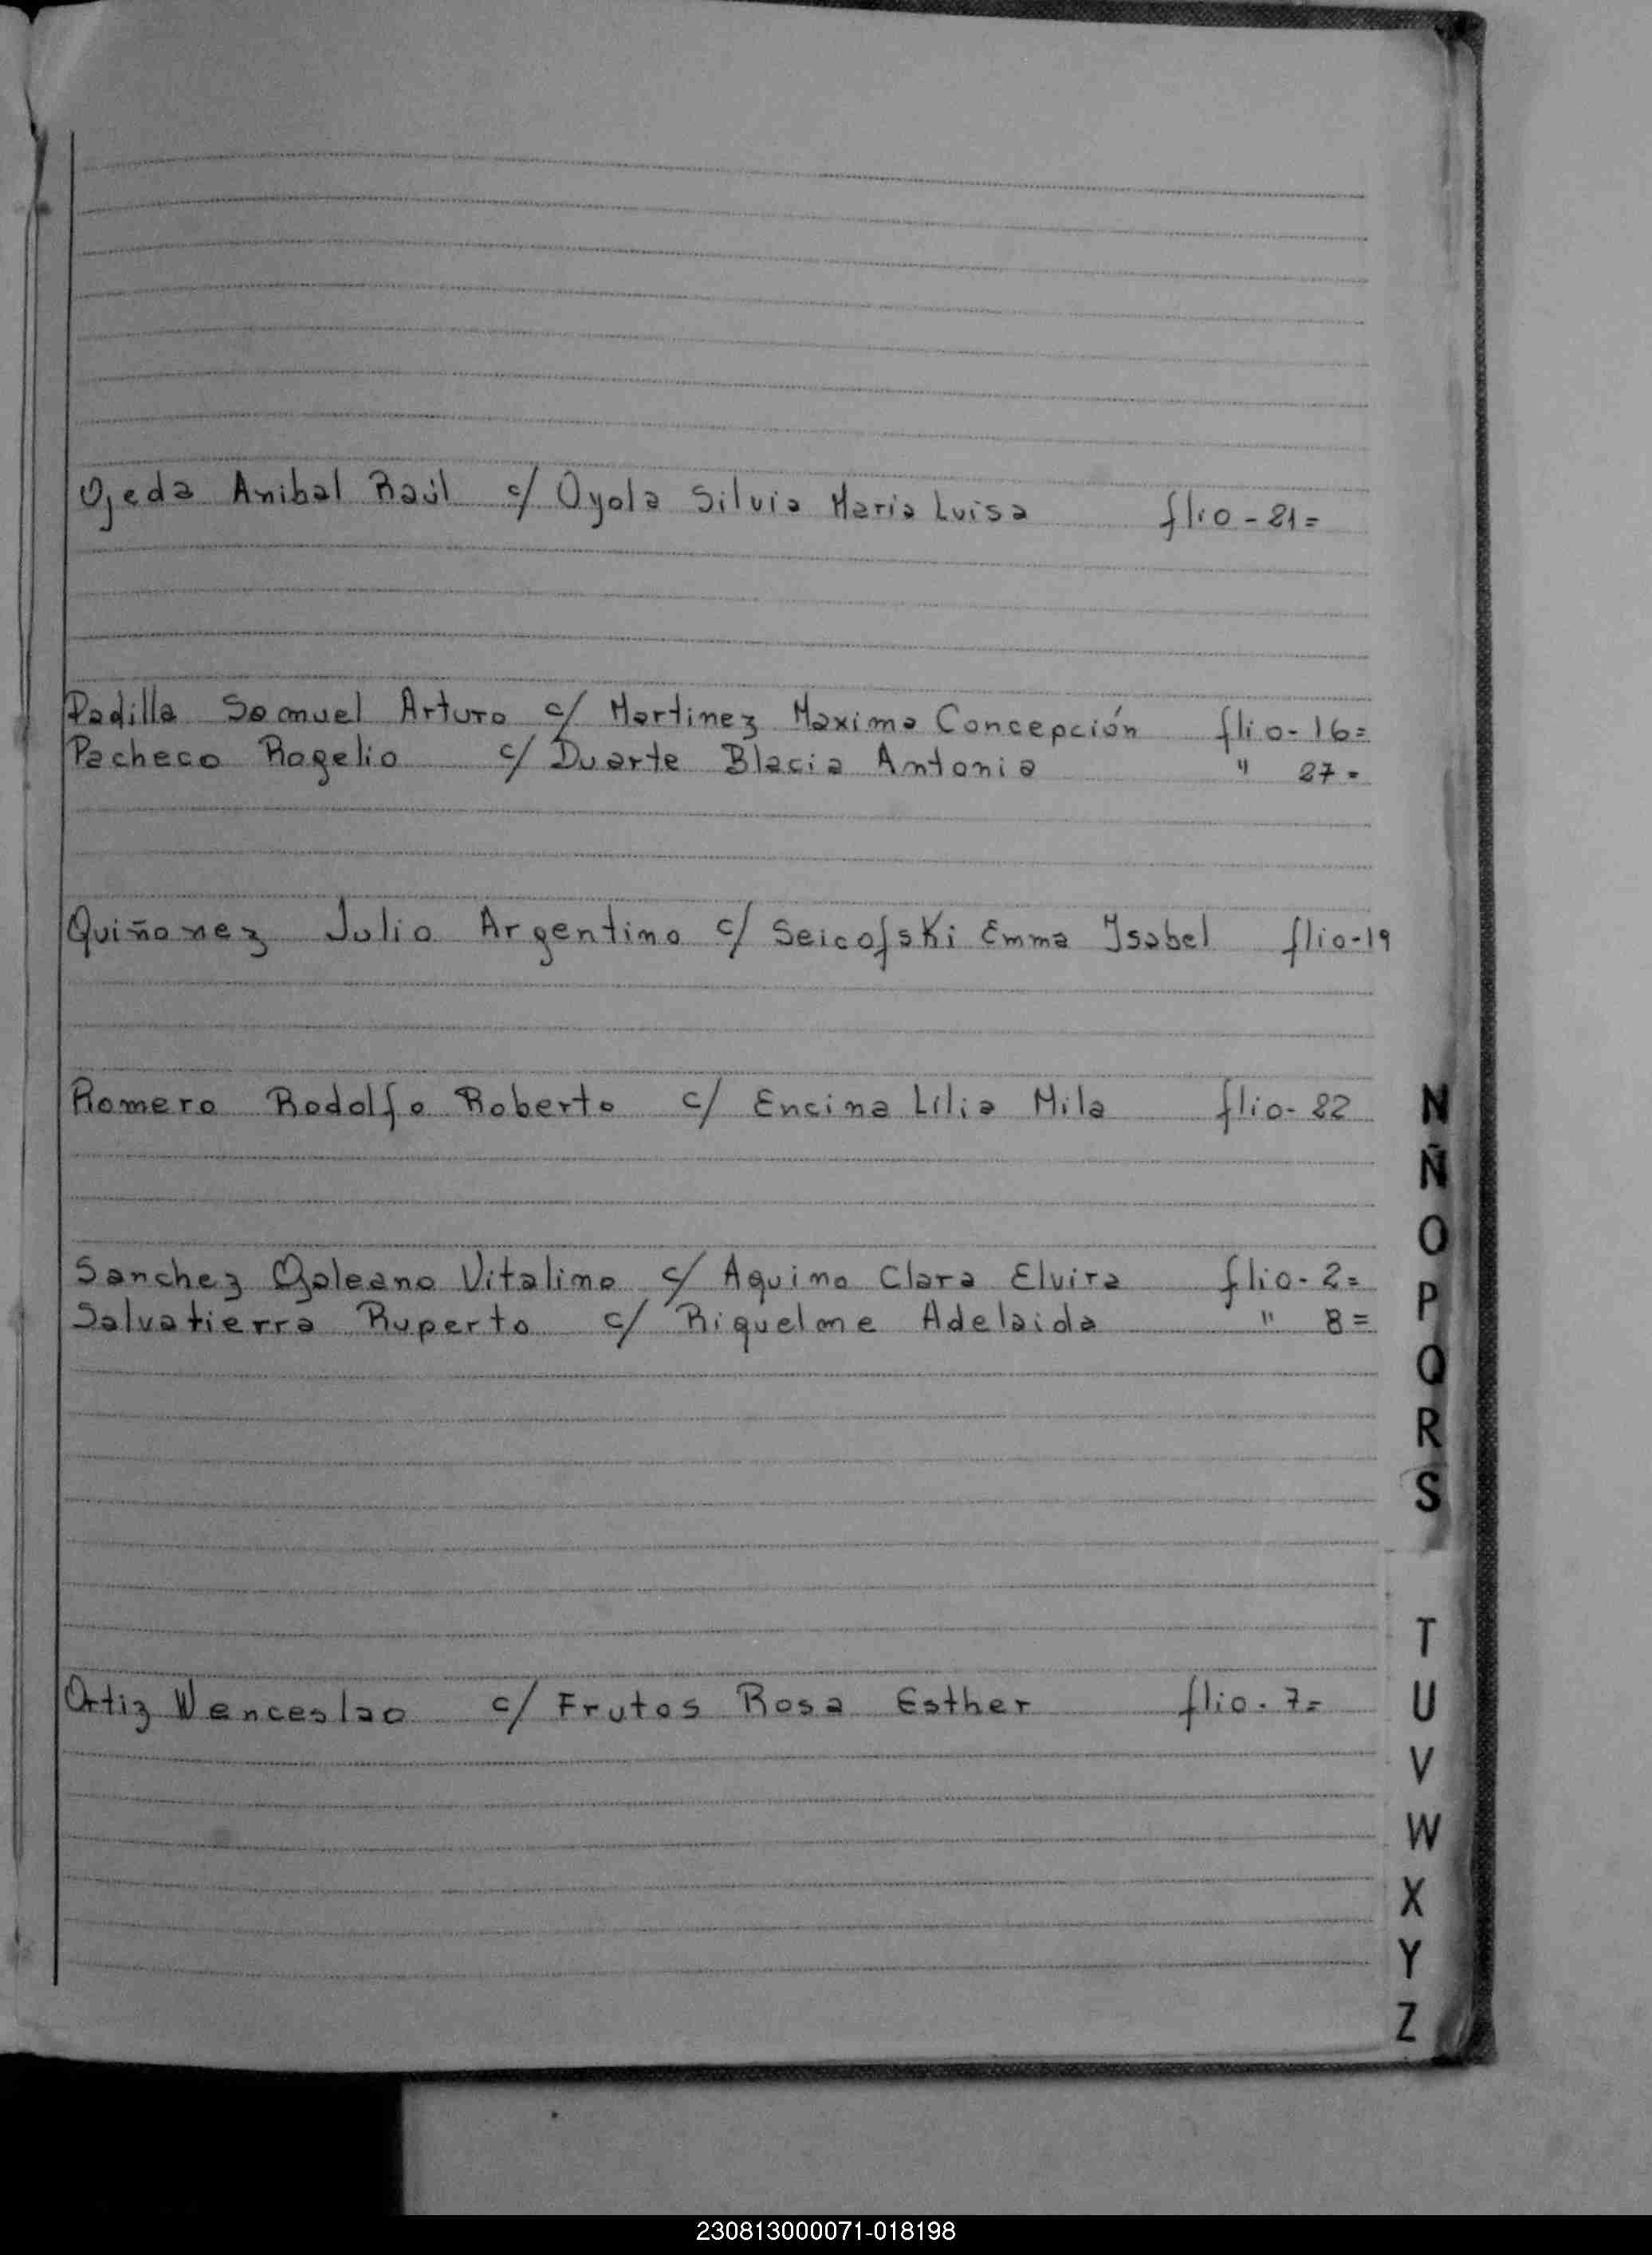 Ojeda Anibal Raúl c/ Oyola Silvia Maria Luisa flio - 21=
Padilla Samuel Arturo c/ Martinez Maxima Concepción flio - 16=
Pacheco Rogelio c/ Duarte Blacia Antonia " 27=
Quiñonez Julio Argentino c/ Seicofski Emma Isabel flio-19
Romero Rodolfo Roberto c/ Encina Lilia Mila flio- 22
Sanchez Galeano Vitalino c/ Aquino Clara Elvira flio - 2=
Salvatierra Ruperto c/ Riquelme Adelaida " 8=
Ortiz Wenceslao c/ Frutos Rosa Esther flio - 7=
N
Ñ
O
P
Q
R
S
T
U
V
W
X
Y
Z
230813000071-018198